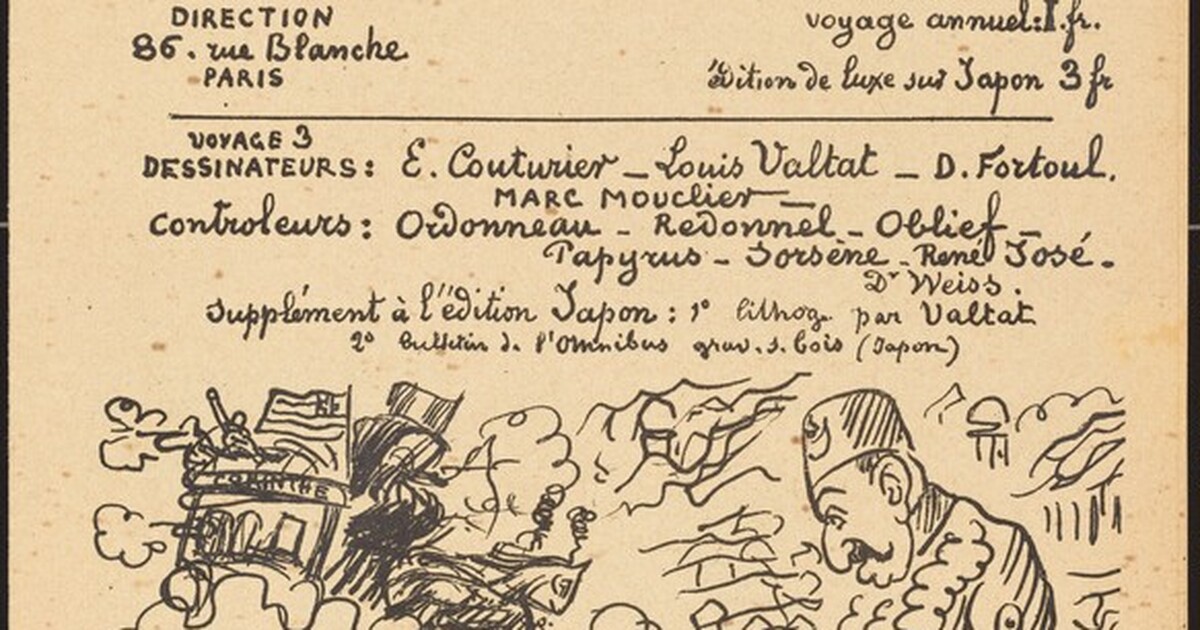 DIRECTION
86. rue Blanche
PARIS
voyage annuel: 1. fr.
édition de luxe sur Japon 3 fr
VOYAGE 3
DESSINATEURS: E. Couturier _ Louis Valtat _ D. Fortoul.
MARC MOUclier _
Controleurs: Ordonneau - Redonnel - Oblief -
Papyrus - Sorsène - René José.
Dr Weiss.
Supplément à l'édition Japon: 1º lithog. par Valtat
2º bulletin de l'Omnibus grav. s. bois (Japon)
CORINTHE